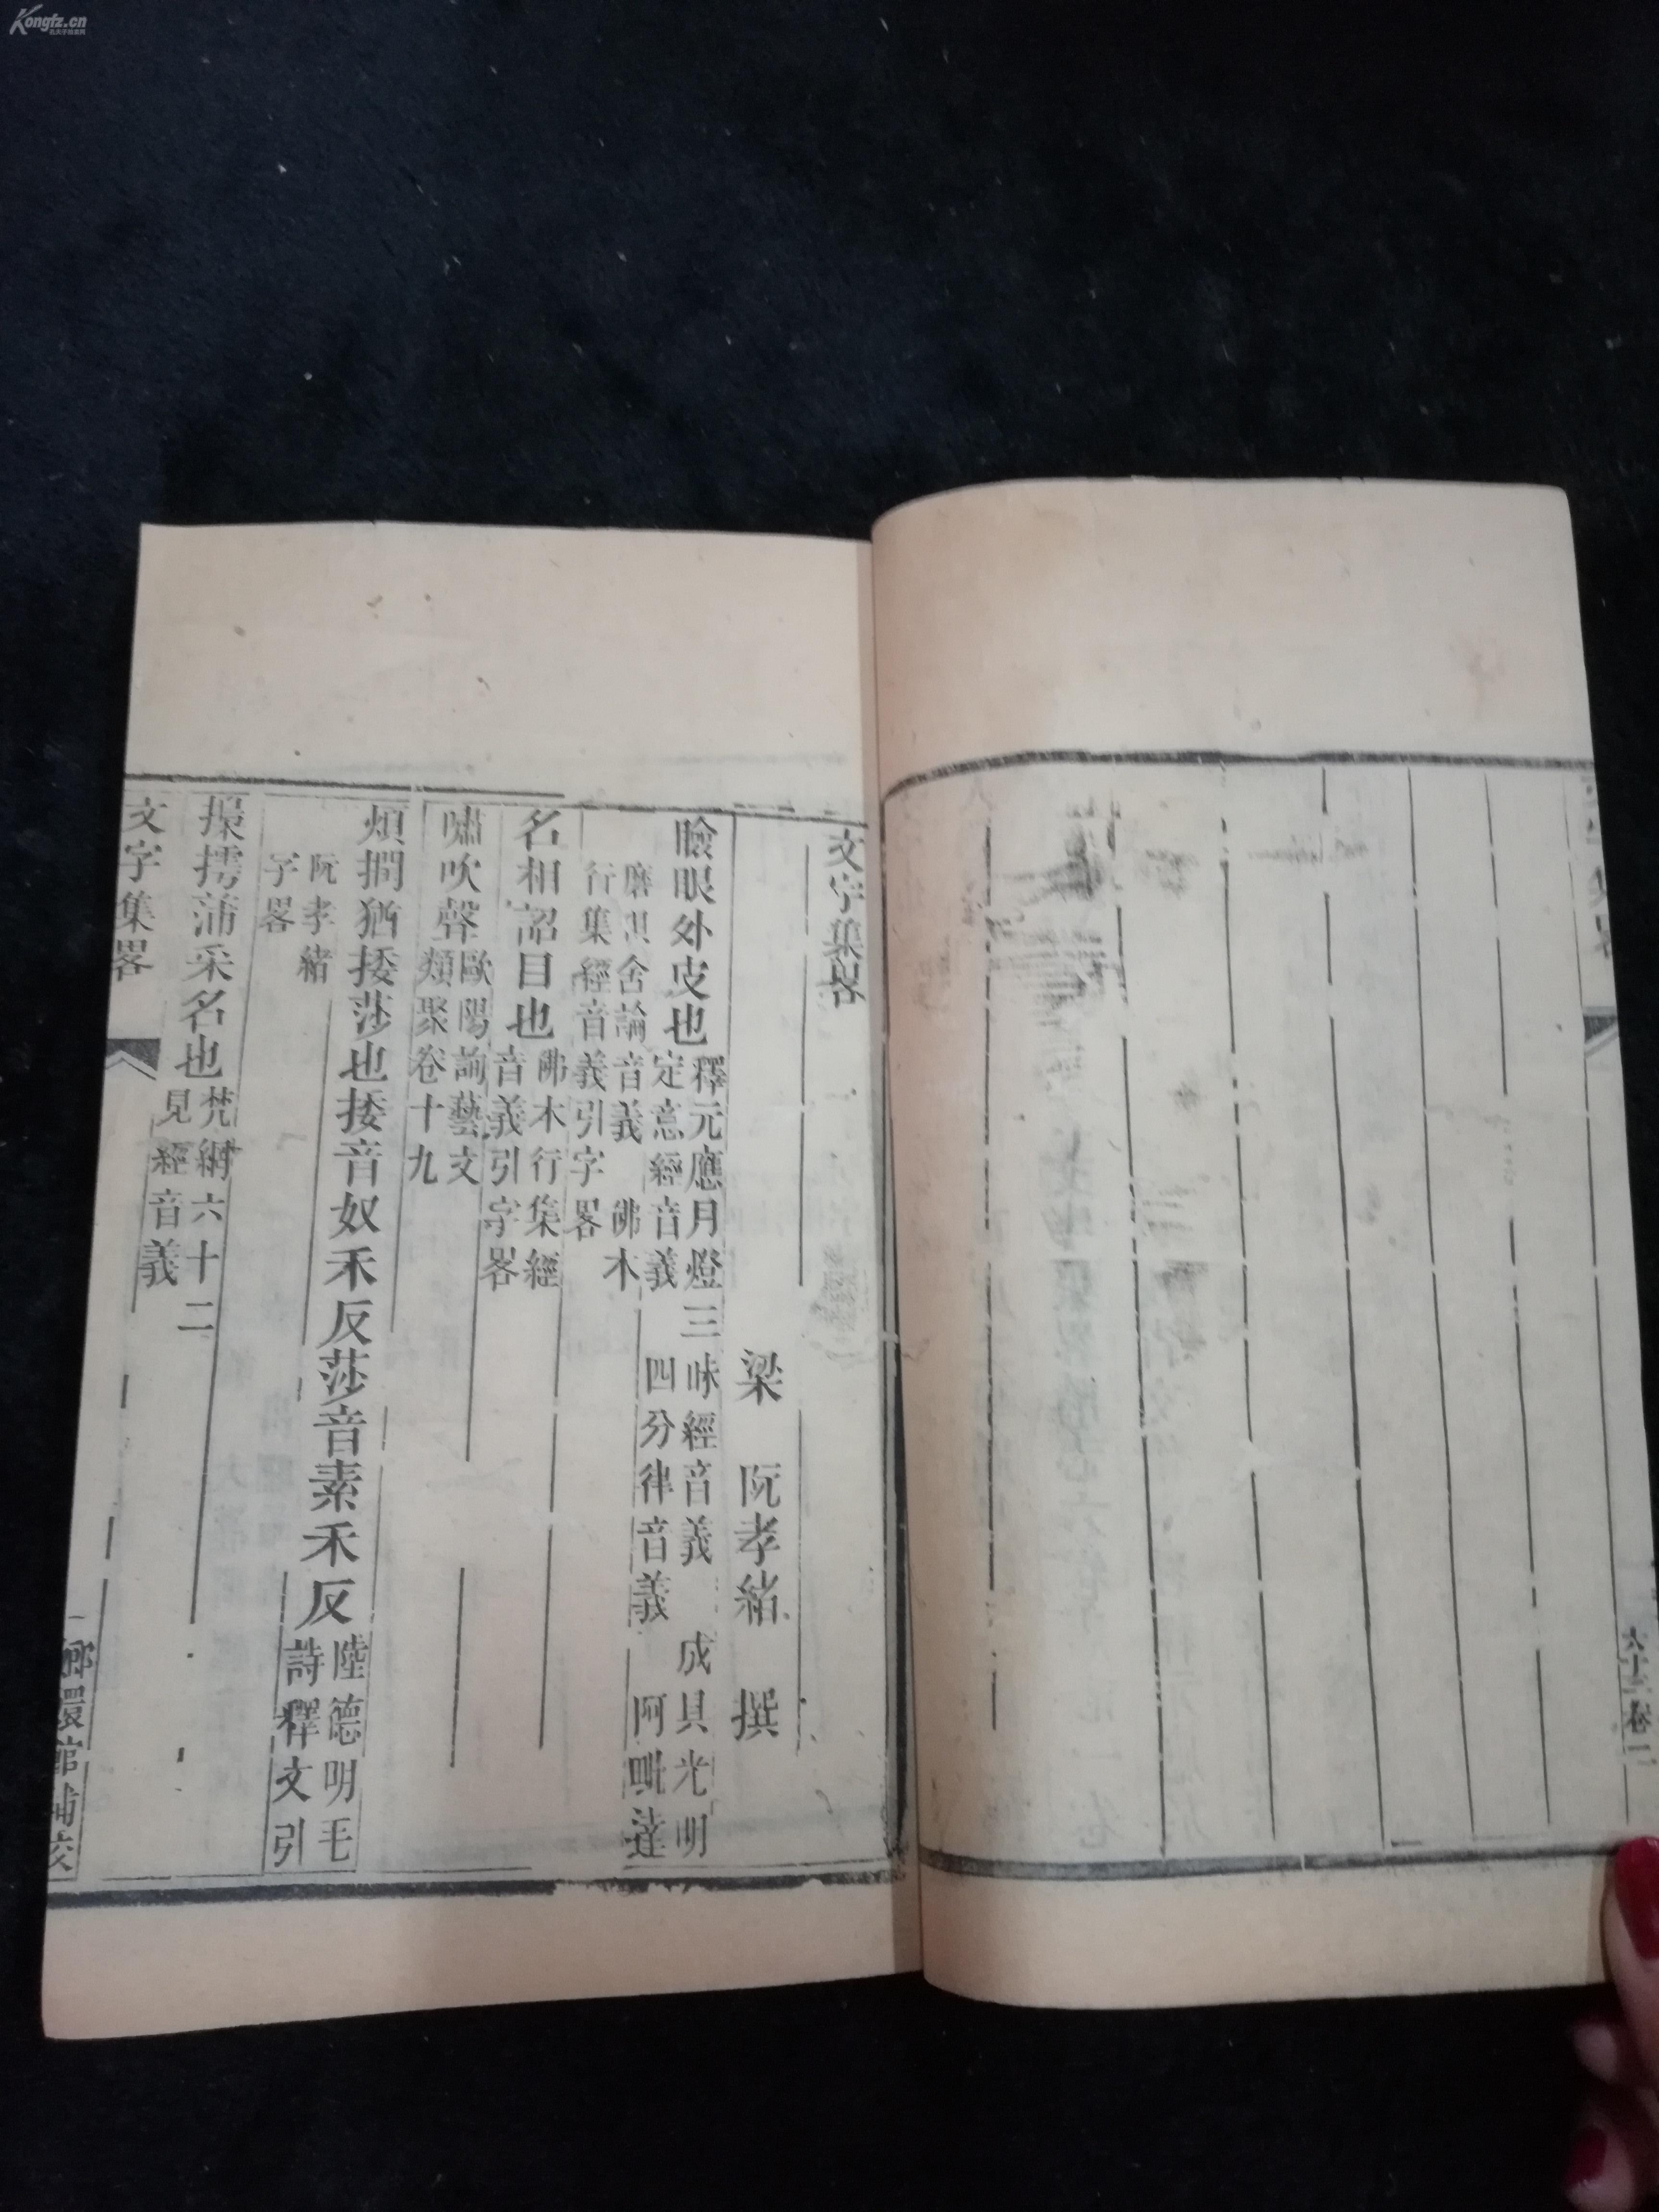 Kongfz.cn
孔夫子旧书网
六十二卷二
文字集畧
梁 阮孝緒 撰
瞼眼外皮也釋元應月燈三昧經音義 成具光明
定意經音義 四分律音義 阿毗達
磨俱舍論音義 佛本
行集經音義引字畧
名相詔目也佛本行集經
音義引字畧
嘯吹聲歐陽詢藝文
類聚卷十九
煩撋猶捼莎也捼音奴禾反莎音素禾反陸德明毛
詩釋文引
阮孝緒
字畧
摴蒲采名也梵網六十二
見經音義
文字集畧
一
嫏嬛館補校